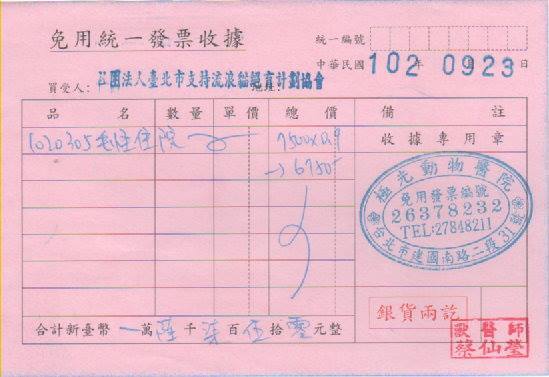 免用統一發票收據
統一編號
中華民國102年 09 23日
買受人: 社團法人臺北市支持流浪貓絕育計劃協會
地址:
品名 數量 單價 總價 備註
1020305 住院 7500x0.9
→6750
收據專用章
極光動物醫院
免用發票編號
26378232
TEL:27848211
台北市建國南路二段31號
銀貨兩訖
合計新臺幣 萬 陸 千 柒 百 伍 拾 零 元整
獸醫師
蔡仙瑩